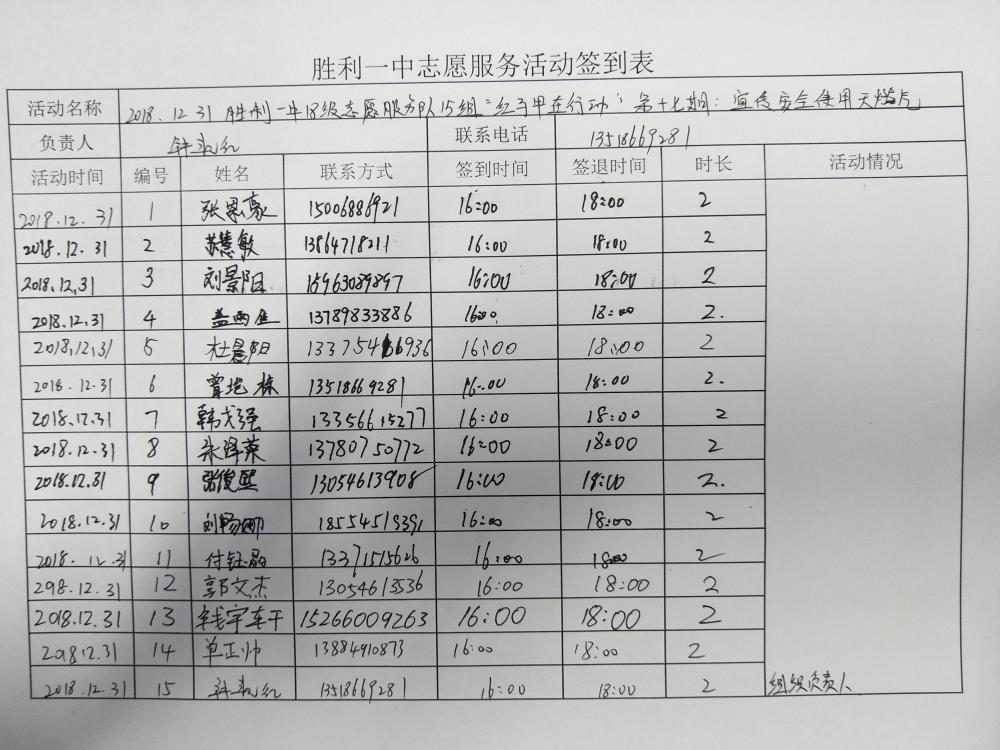 胜利一中志愿服务活动签到表
活动名称 2018.12.31 胜利一中18级志愿服务队15组"红马甲在行动" 第十七期：宣传安全使用天燃气
负责人 联系电话 13518669281
活动时间 编号 姓名 联系方式 签到时间 签退时间 时长 活动情况
2018.12.31 1 张恩豪 15006886921 16:00 18:00 2
2018.12.31 2 苏慧敏 13864718211 16:00 18:00 2
2018.12.31 3 刘景阳 15963089897 16:00 18:00 2
2018.12.31 4 盖雨佳 13789833886 16:00 18:00 2.
2018.12.31 5 杜晨阳 13375466936 16:00 18:00 2
2018.12.31 6 曾 栋 13518669281 16:00 18:00 2.
2018.12.31 7 韩戈强 13356615277 16:00 18:00 2
2018.12.31 8 朱泽荣 13780750772 16:00 18:00 2
2018.12.31 9 张俊熙 13054613908 16:00 18:00 2.
2018.12.31 10 刘畅娜 18554519391 16:00 18:00 2
2018.12.31 11 付钰 13371515626 16:00 18:00 2
298.12.31 12 郭文杰 13054613536 16:00 18:00 2
2018.12.31 13 钱宇轩 15266009263 16:00 18:00 2
201812.31 14 单正帅 13884910873 16:00 18:00 2
2018.12.31 15 13518669281 16:00 18:00 2 组织负责人